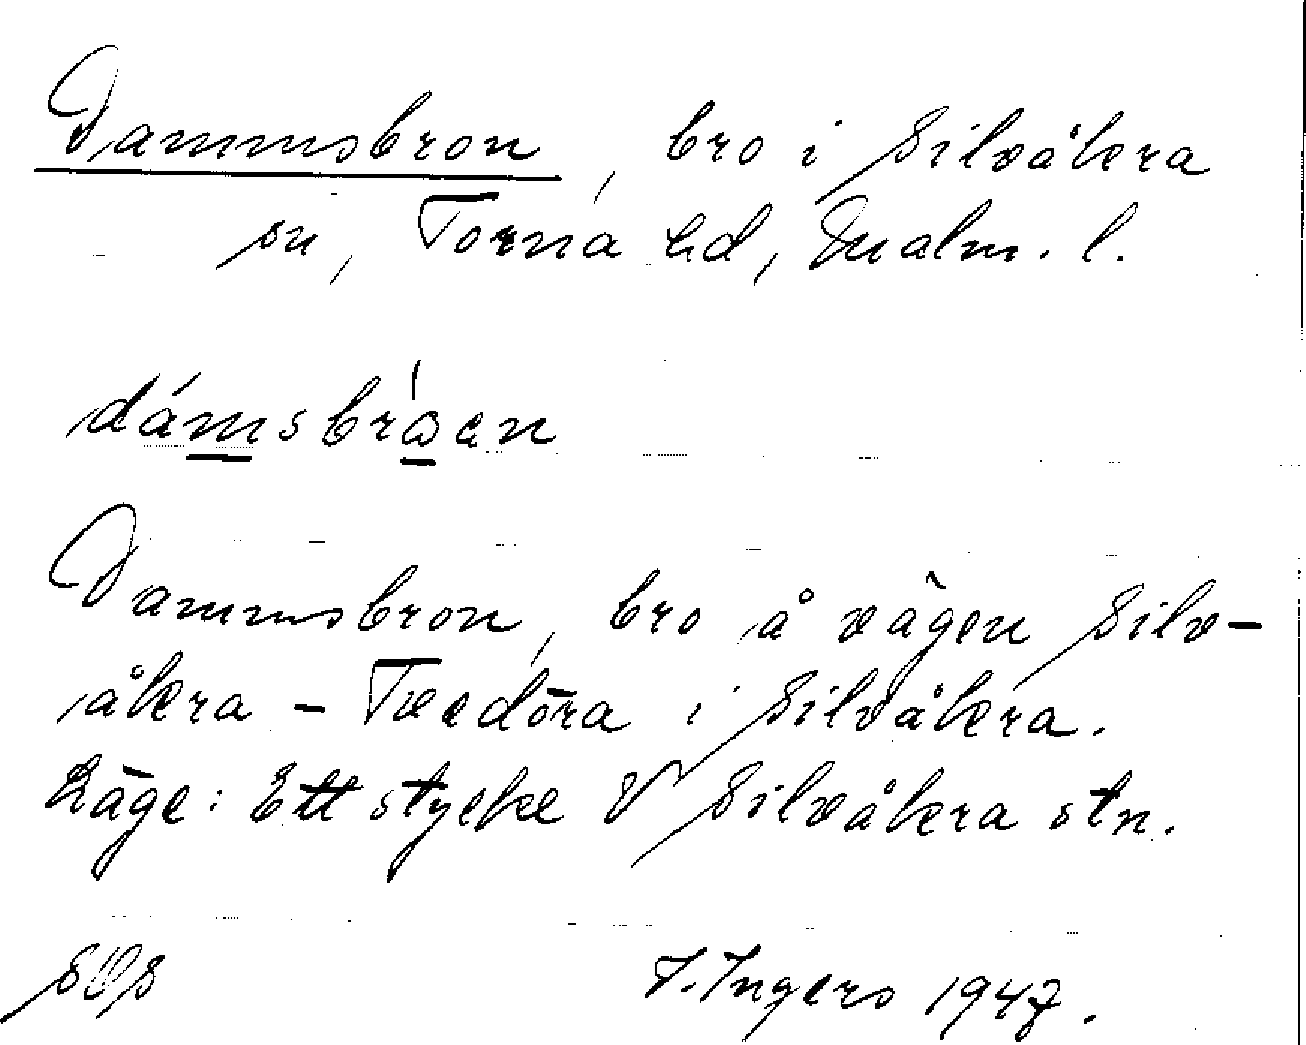 Dammsbron, bro i Silvåkra
sn, Torna hd, Malm. l.
dámsbróen
Dammsbron, bro å vägen Silv-
åkra – Tvedöra i Silvåkra.
Läge: Ett stycke V Silvåkra stn.
I. Ingers 1947.